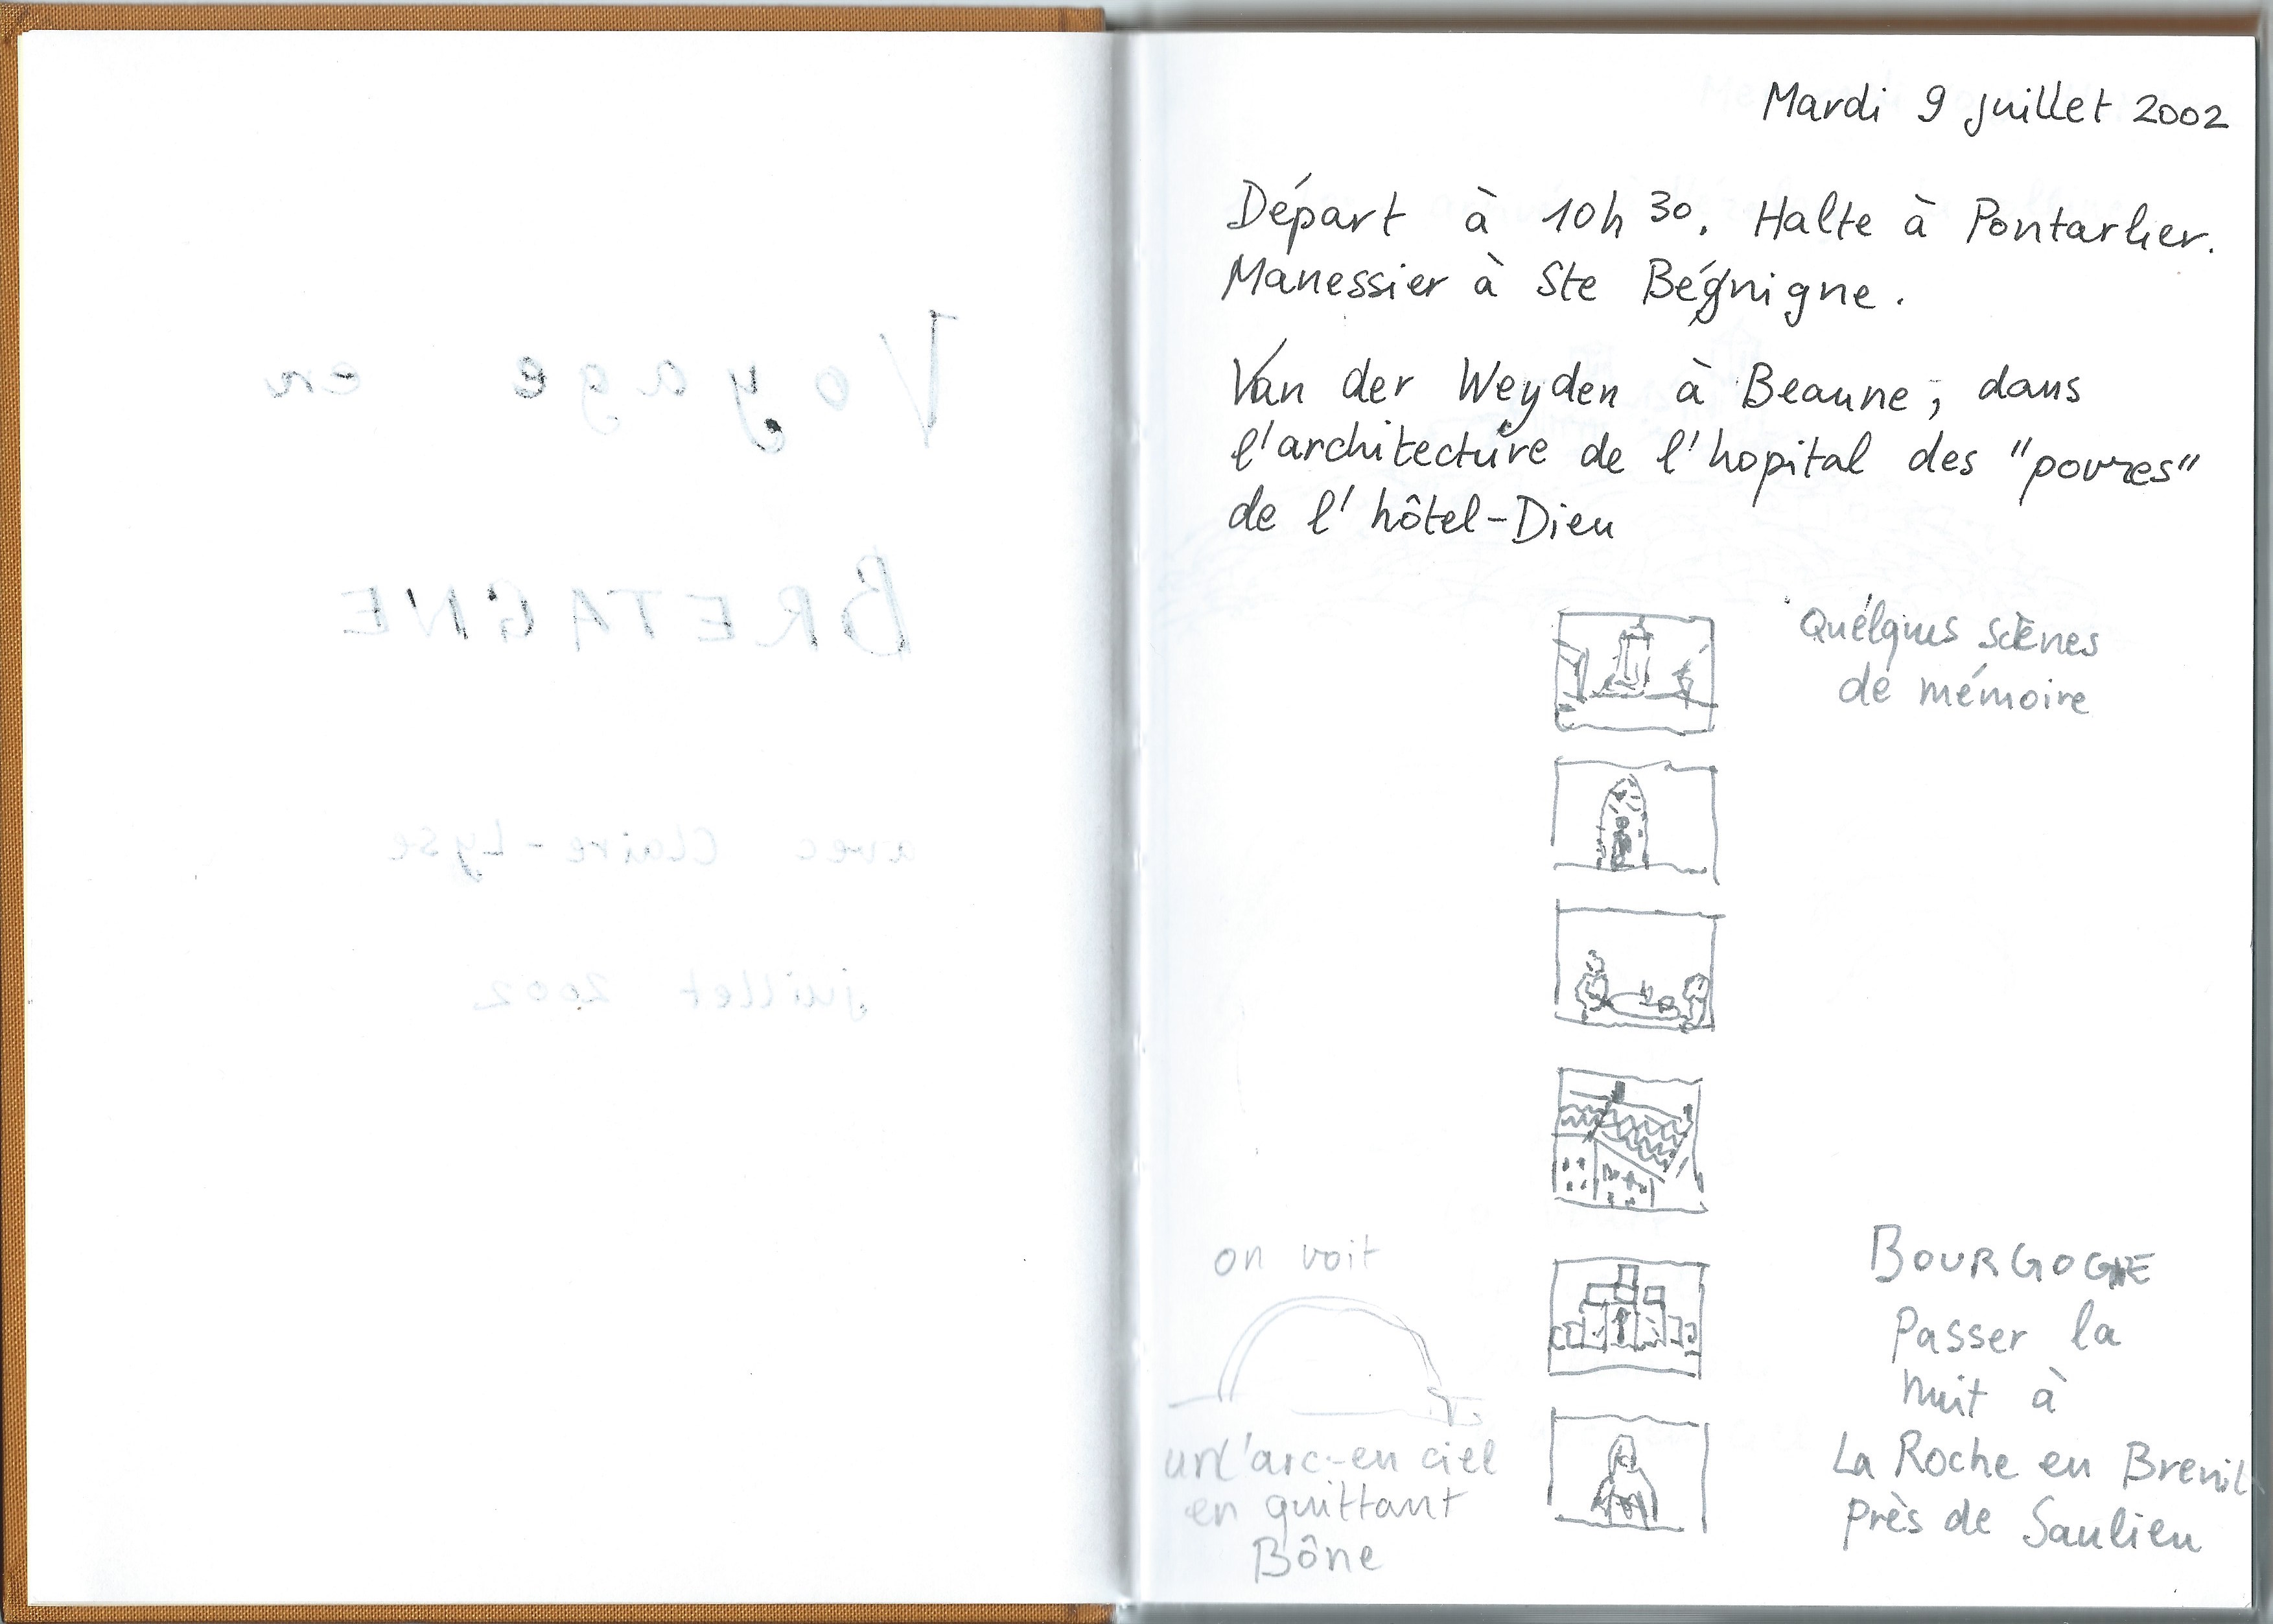 Voyage en
BRETAGNE
avec Claire-Lyse
juillet 2002
Mardi 9 juillet 2002
Départ à 10h30. Halte à Pontarlier.
Manessier à Ste Bégnigne.
Van der Weyden à Beaune, dans
l'architecture de l'hopital des "povres"
de l'hôtel-Dieu
Quélques scènes
de mémoire
on voit
un l'arc-en ciel
en quittant
Bône
BOURGOGNE
Passer la
nuit à
La Roche en Brenil
près de Saulieu